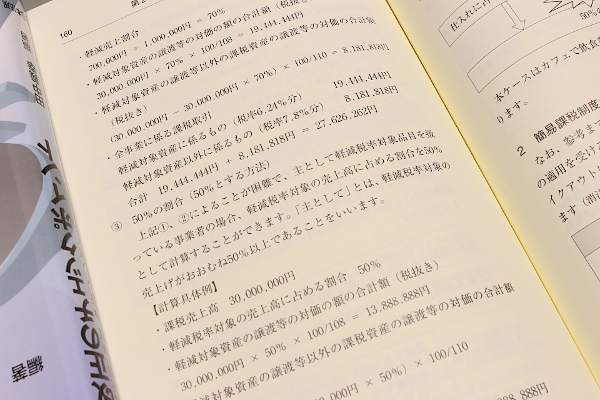 160
・軽減売上割合
700,000円 ÷ 1,000,000円 = 70%
・軽減対象資産の譲渡等の対価の額の合計額（税抜き）
30,000,000円 × 70% × 100/108 = 19,444,444円
・軽減対象資産の譲渡等以外の課税資産の譲渡等の対価の合計額
（税抜き）
(30,000,000円 － 30,000,000円 × 70%) × 100/110 = 8,181,818円
・全事業に係る課税取引
軽減対象資産に係るもの（税率6.24%分） 19,444,444円
軽減対象資産以外に係るもの（税率7.8%分） 8,181,818円
合計 19,444,444円 + 8,181,818円 = 27,626,262円
③ 50%の割合（50%とする方法）
上記①、②によることが困難で、主として軽減税率対象品目を扱
っている事業者の場合、軽減税率対象の売上高に占める割合を50%
として計算することができます。「主として」とは、軽減税率対象の
売上げがおおむね50%以上であることをいいます。
【計算具体例】
・課税売上高 30,000,000円
・軽減税率対象の売上高に占める割合 50%
・軽減対象資産の譲渡等の対価の額の合計額（税抜き）
30,000,000円 × 50% × 100/108 = 13,888,888円
・軽減対象資産の譲渡等以外の課税資産の譲渡等の対価の合計額
× 50%) × 100/110
仕入れに占
本ケースはカフェで飲食
ります。
2 簡易課税制度
なお、参考まで
の適用を受ける
イクアウト
ます
編著